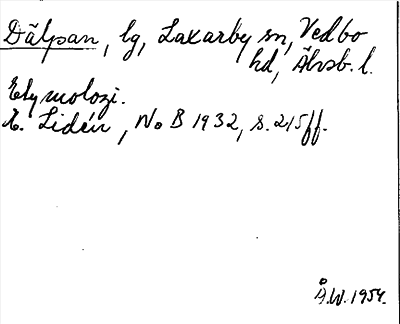 Dälpan, lg, Laxarby sn, Vedbo
hd, Älvsb. l.
Etymologi.
E. Lidén, NoB 1932, s. 215ff.
Å.W. 1954.